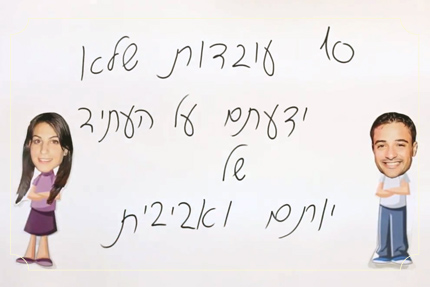 10 עובדות שלא
ידעתם על העתיד
של
יותם ואביבית